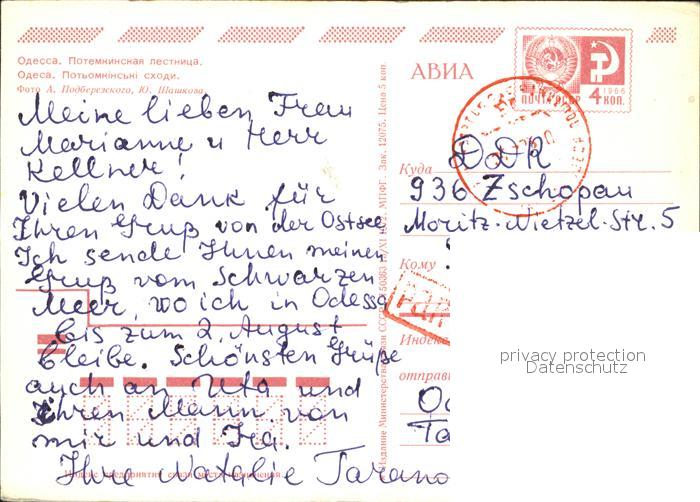 Одесса. Потемкинская лестница.
Одеса. Потьомкінські сходи.
Фото А. Подберезского, Ю. Шашкова
Meine lieben Frau
Marianne u Herr
Kellner!
Vielen Dank für
Ihren Gruß von der Ostsee
Ich sende Ihnen meinen
Gruß vom Schwarzen
Meer, wo ich in Odessa
bis zum 2. August
bleibe. Schönsten Grüße
auch an Uta und
Ihren Mann von
mir und Ira.
Ihre Natalie Tarano
Издание Министерства связи СССР
МПФГ. Зак. 12075. Цена 5 коп.
АВИА
ПОЧТА СССР
4 КОП.
1966
Куда
DDR
936 Zschopau
Moritz-Nietzel-Str. 5
Кому
Индекс
отправи
Od
Ta
privacy protection
Datenschutz